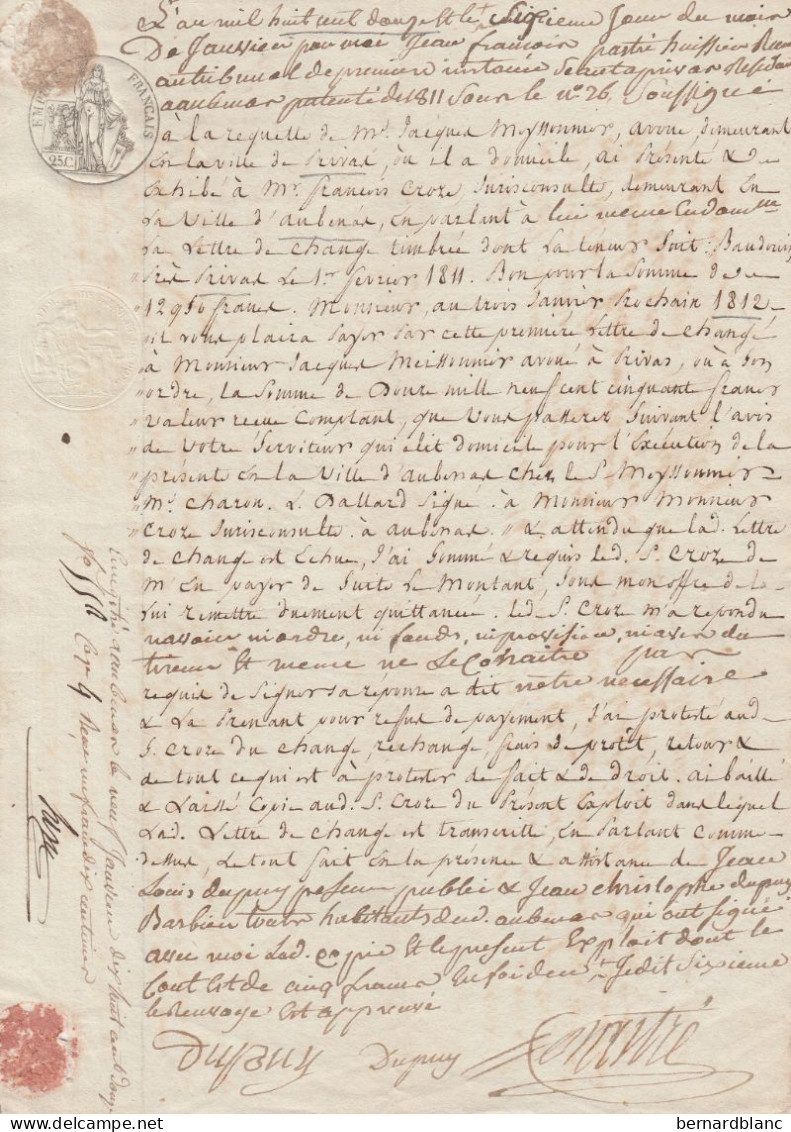 L'an mil huit cent douze et le Sixieme Jour du mois
De Janvier par moi Jean françois pastré huissier
au tribunal de premiere instance Seant a privas Residant
a aubenas patenté de 1811 Sous le n°. 26 Soussigné
à la requette de Mr. Jacques Meyssonnier, avoué, demeurant
En la ville de Privas, où il a domicile, ai Présenté & de
Exhibé à Mr. françois Croze, Jurisconsulte, demeurant En
La Ville d'aubenas, En parlant à lui meme
La Lettre de change timbrée dont La teneur Suit: Baudouin
Près Privas Le 1er. fevrier 1811. Bon pour la Somme de
12950 francs. Monsieur, au trois Janvier Prochain 1812
il vous plaira Payer Par cette première Lettre de change
à Monsieur Jacques Meissonnier avoué à Privas, où à Son
ordre, la Somme de Douze mille neuf cent cinquante francs
Valeur recue Comptant, que Vous passerez Suivant l'avis
de Votre Serviteur qui elit domicile pour l'Execution de la
présente En la Ville d'aubenas chez le S. Meyssonnier
Mr. Charon. L. Ballard Signé. à Monsieur Monsieur
Croze Jurisconsulte. à aubenas. " & attendu que lad. Lettre
de change est Echue, J'ai Sommé & requis led. S. Croze de
m'En payer de Suite Le Montant, Sous mon offre de
Lui remettre duement quittancée. led. S. Croze m'a repondu
n'avoir ni ordre, ni fonds, ni provision, ni avis du
tireur Et meme ne Le Conaitre pas
requis de Signer Sa réponse a dit n'etre necessaire
& La Prenant pour refus de payement, J'ai protesté aud
S. Croze du change, rechange, frais de protêt, retour &
de tout ce qui est à protester de fait & de droit. ai baillé
& Laissé Copie aud. S. Croze du Présent Exploit dans lequel
Lad. Lettre de change est transcritte, En Parlant Comme
dessus, Le tout fait En la présence & assistance de Jean
Louis dupuy peseur public & Jean christophe dupuy
Barbier tous habitants dud. aubenas qui ont signé
avec moi Lad. copie Et le present Exploit dont le
Cout Est de cinq francs En foi de Jedit Sixieme
le Renvoye Est approuvé
Dupuy Dupuy Pastré
EMPIRE FRANÇAIS
25 C.
Enregistré à aubenas le neuf Janvier dix huit cent douze
fo. 55 Ca. 9 Reçu un franc dix centimes
bernardblanc